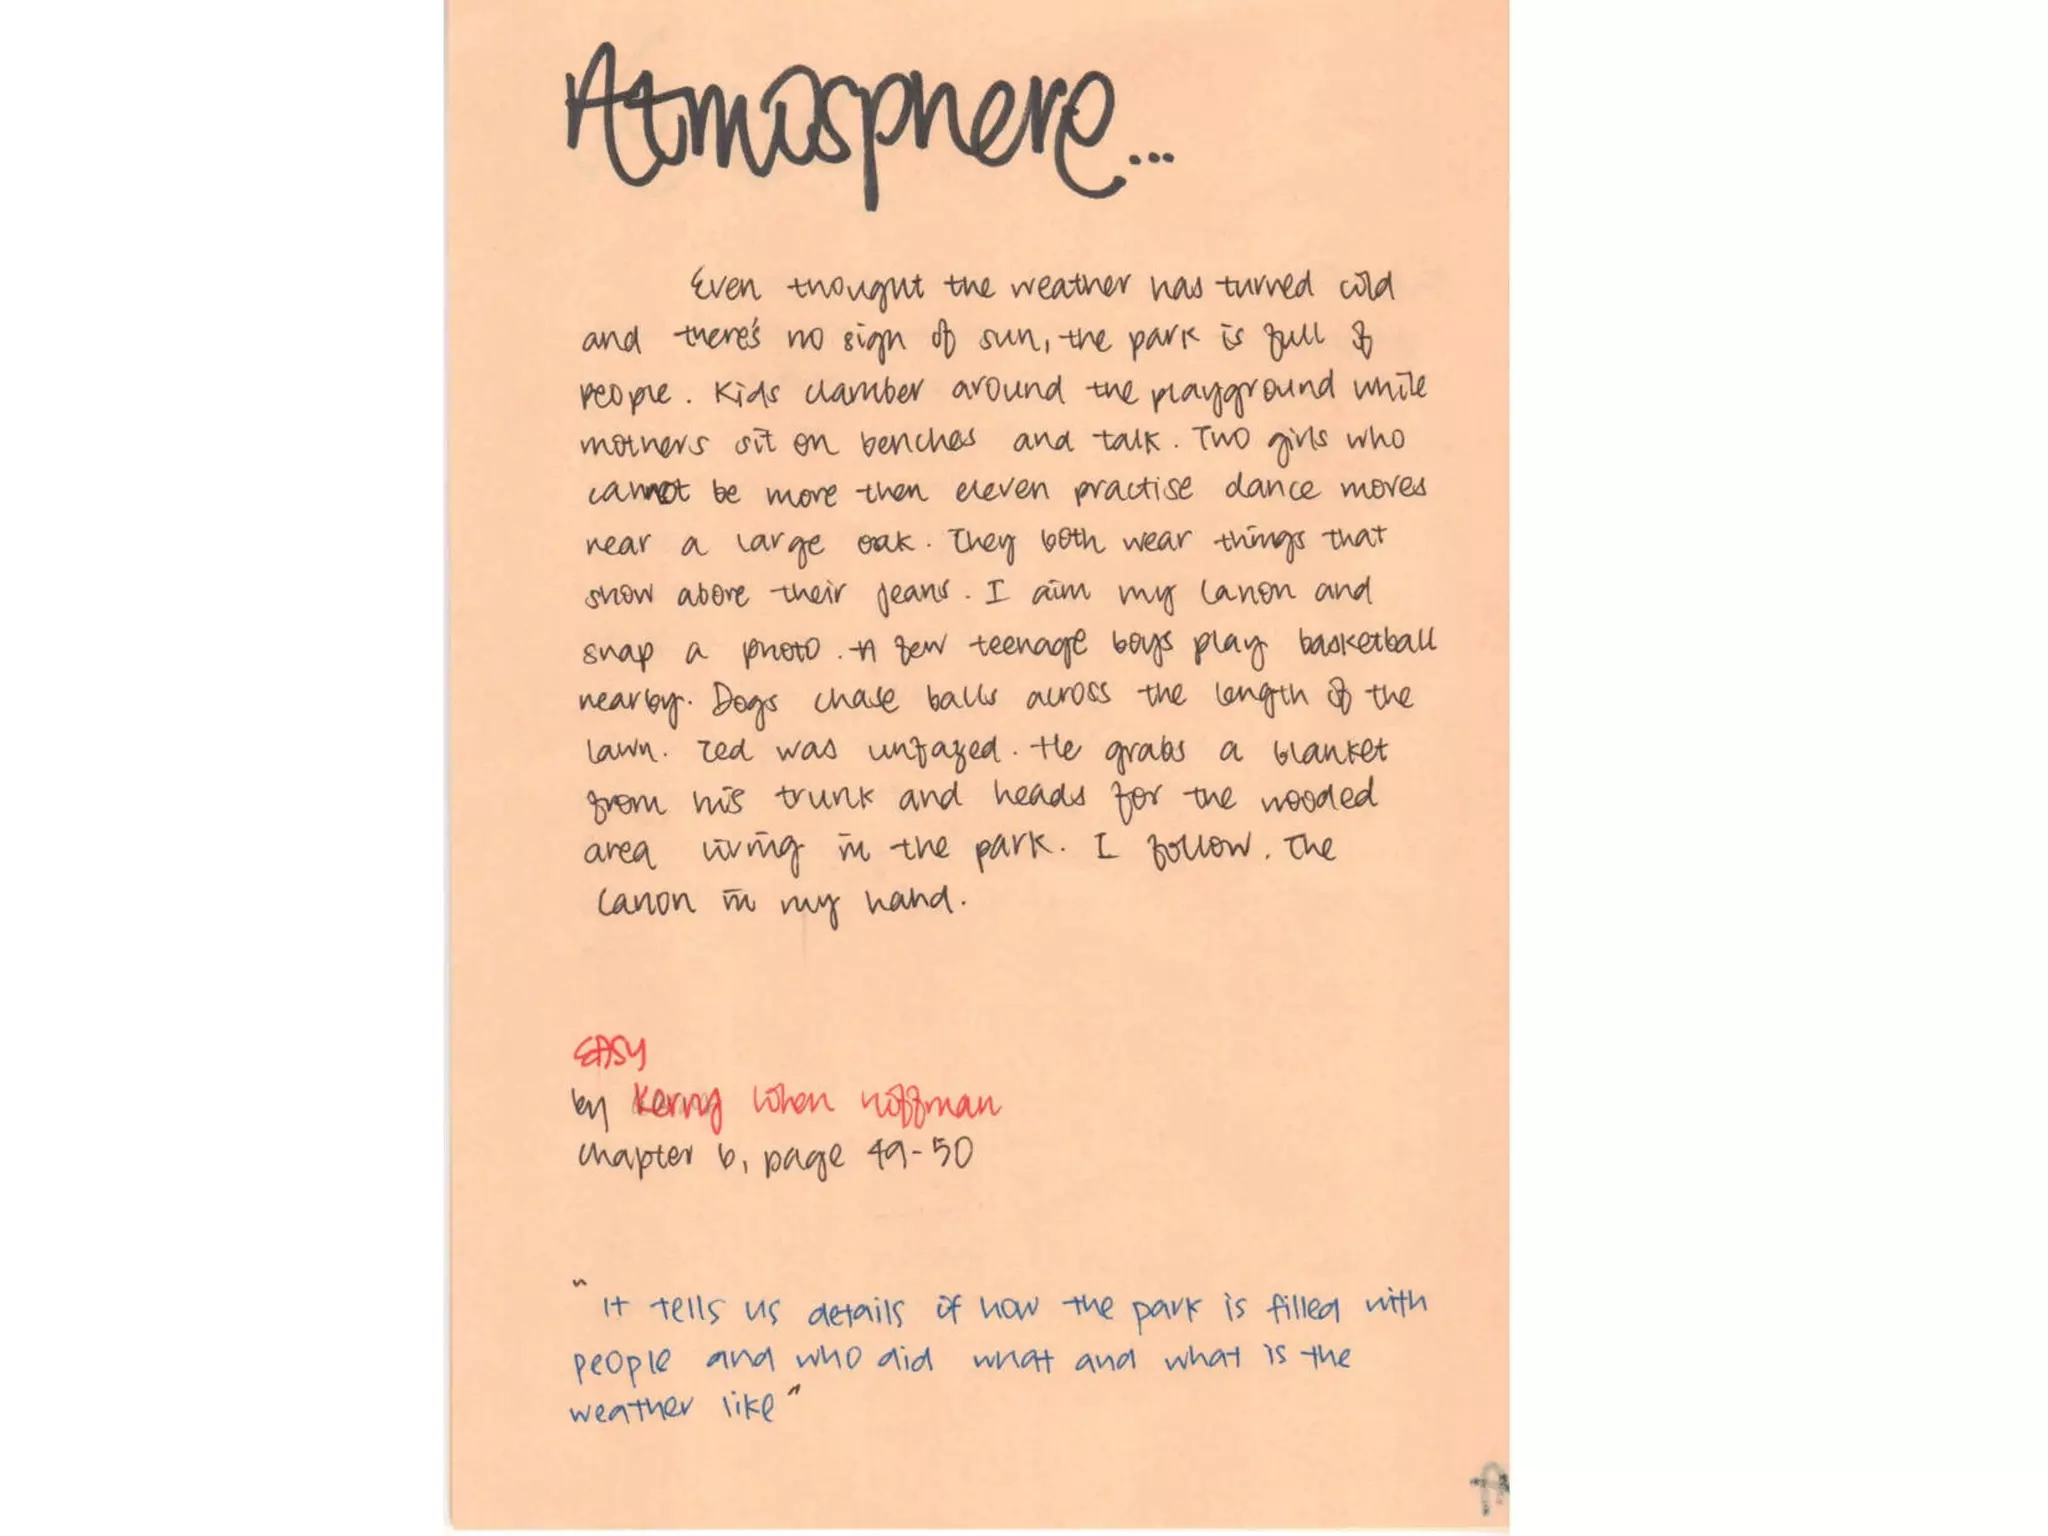 Atmosphere...
Even thought the weather has turned cold
and there's no sign of sun, the park is full of
people. Kids clamber around the playground while
mothers sit on benches and talk. Two girls who
cannot be more then eleven practise dance moves
near a large oak. They both wear things that
show above their jeans. I aim my Canon and
snap a photo. A few teenage boys play basketball
nearby. Dogs chase balls across the length of the
lawn. Ted was unfazed. He grabs a blanket
from his trunk and heads for the wooded
area living in the park. I follow. The
Canon in my hand.
EASY
by Kerry Cohen Hoffman
chapter 6, page 49-50
"It tells us details of how the park is filled with
people and who did what and what is the
weather like"
A